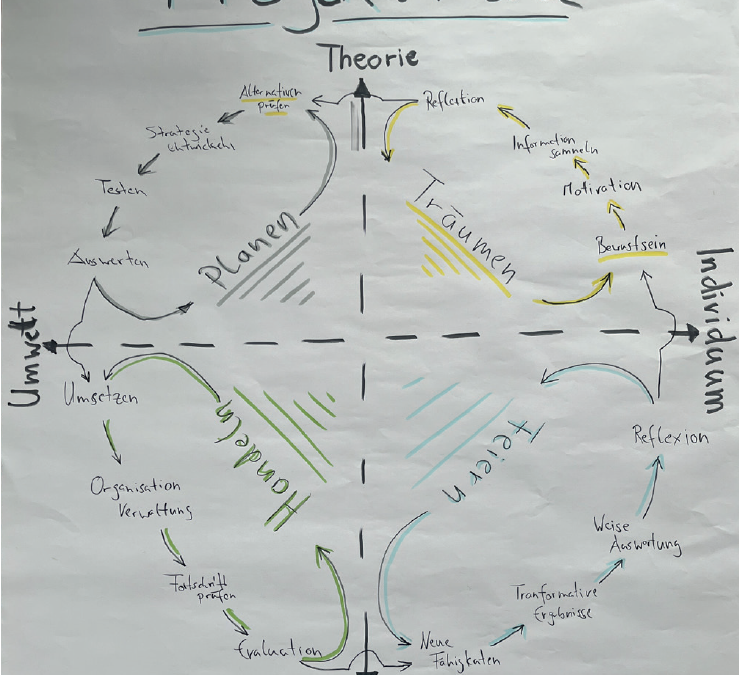 Theorie
Alternativen
prüfen
Reflektion
Strategie
entwickeln
Information
sammeln
Testen
Motivation
Planen
Träumen
Auswerten
Bewustsein
Umwelt
Individuum
Umsetzen
Handeln
Feiern
Reflexion
Organisation
Verwaltung
Weise
Auswertung
Fortschritt
prüfen
Tranformative
Ergebnisse
Evaluation
Neue
Fähigkeiten